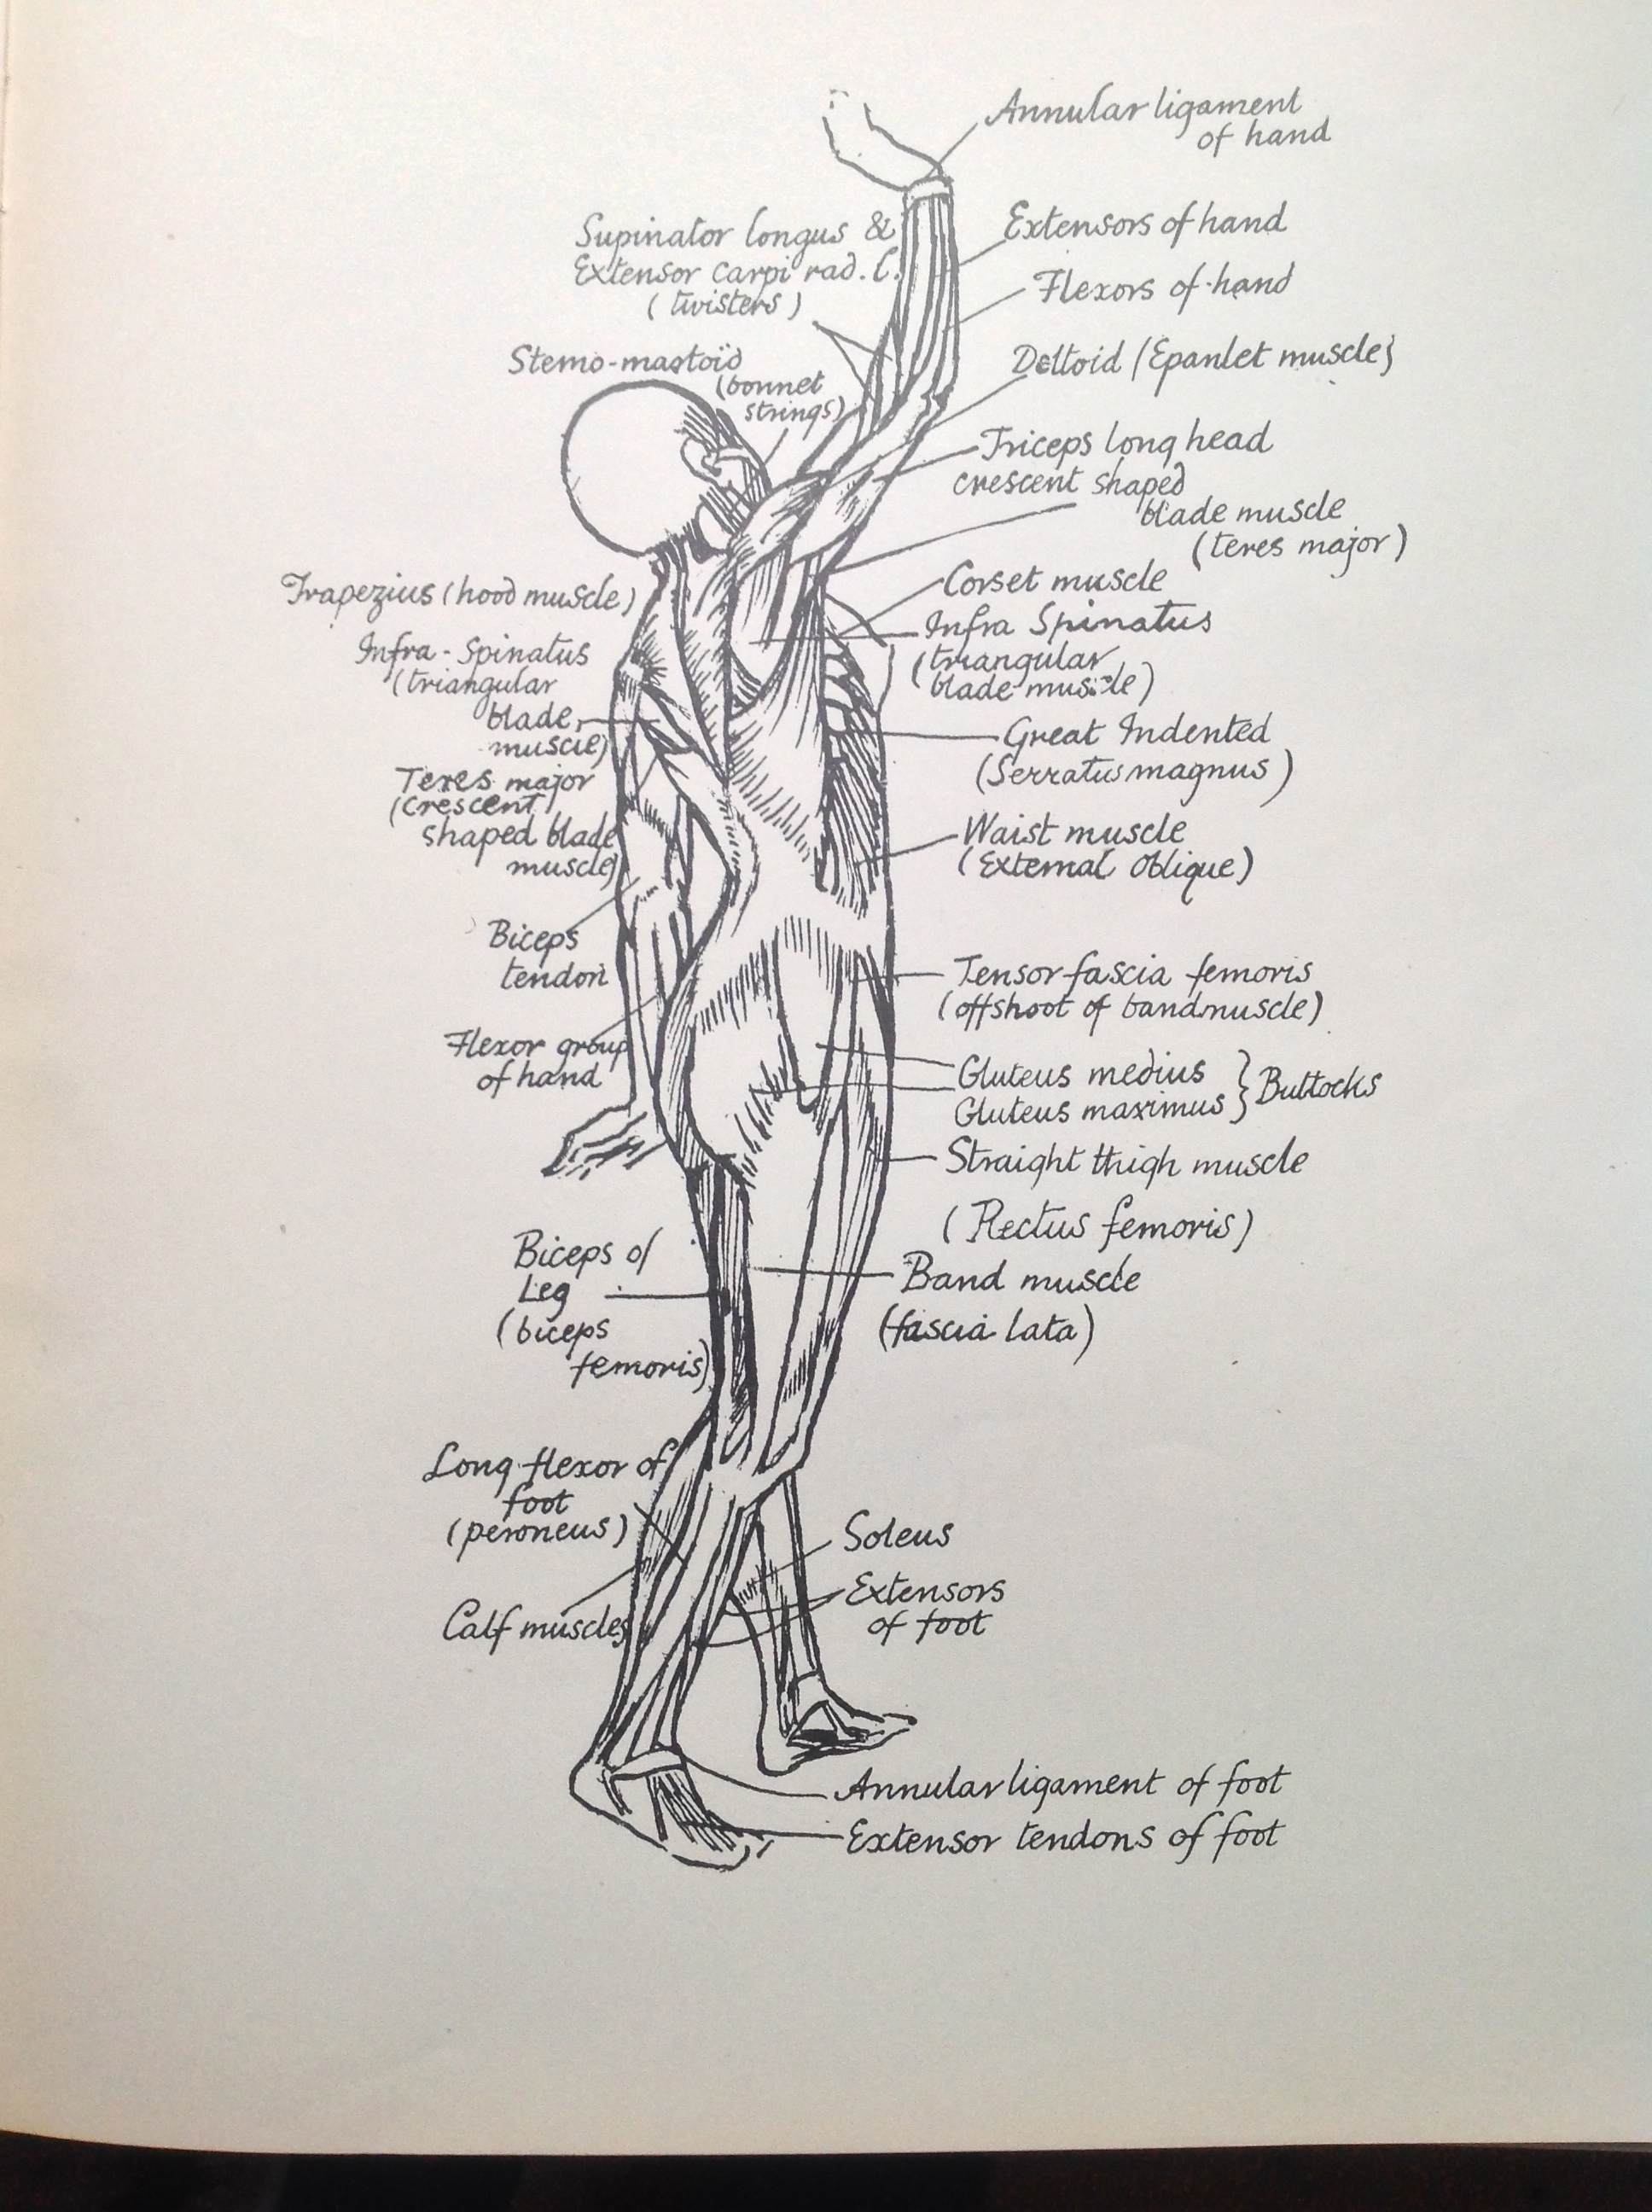 Annular ligament
of hand
Supinator longus &
Extensor carpi rad. l.
(twisters)
Extensors of hand
Flexors of hand
Sterno-mastoid
(bonnet
strings)
Deltoid (Epaulet muscle)
Triceps long head
crescent shaped
blade muscle
(teres major)
Trapezius (hood muscle)
Corset muscle
Infra Spinatus
(triangular
blade muscle)
Infra-Spinatus
(triangular
blade
muscle)
Great Indented
(Serratus magnus)
Teres major
(crescent
shaped blade
muscle)
Waist muscle
(External Oblique)
Biceps
tendon
Tensor fascia femoris
(offshoot of band muscle)
Flexor group
of hand
Gluteus medius
Gluteus maximus
Buttocks
Straight thigh muscle
(Rectus femoris)
Biceps of
Leg
(biceps
femoris)
Band muscle
(fascia lata)
Long flexor of
foot
(peroneus)
Soleus
Extensors
of foot
Calf muscles
Annular ligament of foot
Extensor tendons of foot